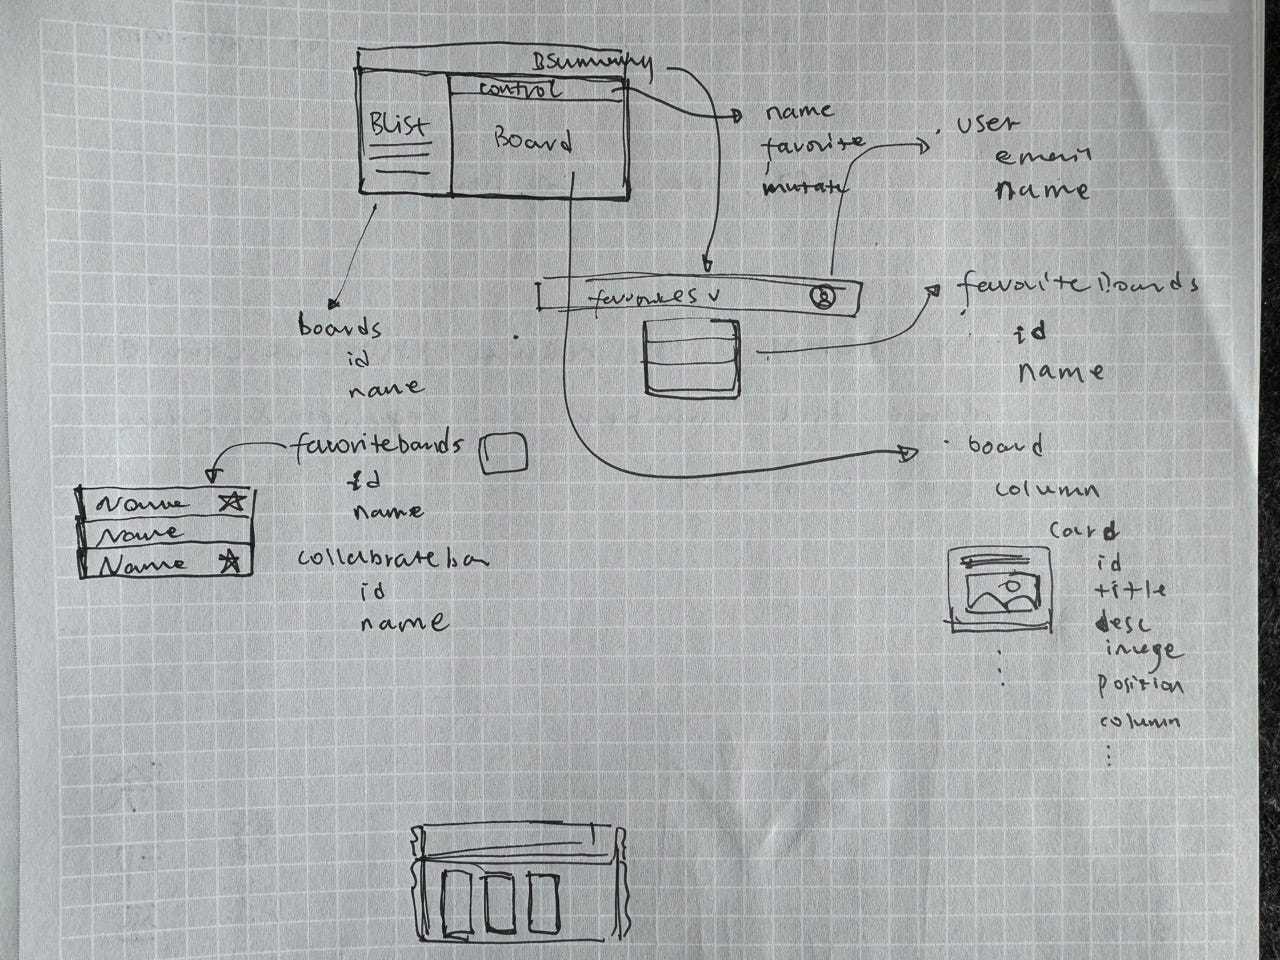 BSummary
control
BList
Board
name
favorite
mutate
user
email
name
favorites v
favoriteBoards
id
name
boards
id
name
favoriteboards
id
name
Name
Name
Name
collabrateboa
id
name
board
column
Card
id
title
desc
image
position
column